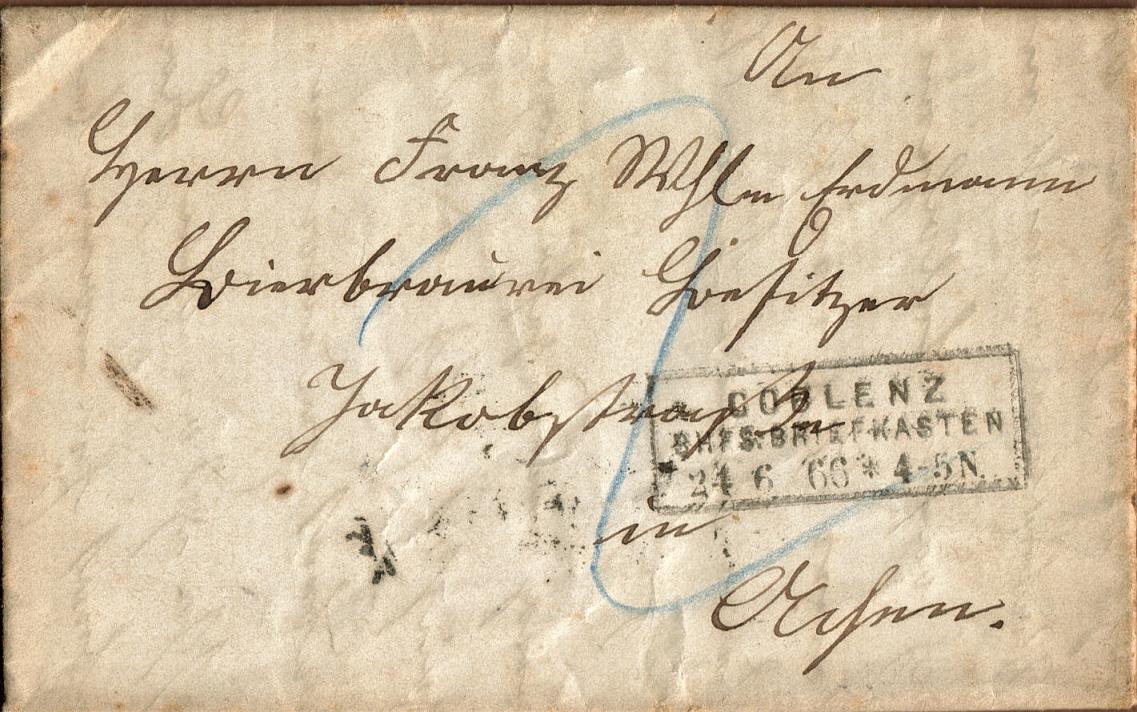 An
Herrn Franz Whlm Erdmann
Bierbrauerei Besitzer
Jakobstraße
COBLENZ
BHFS. BRIEFKASTEN
24 6 66 * 4-5N
in
Achen.